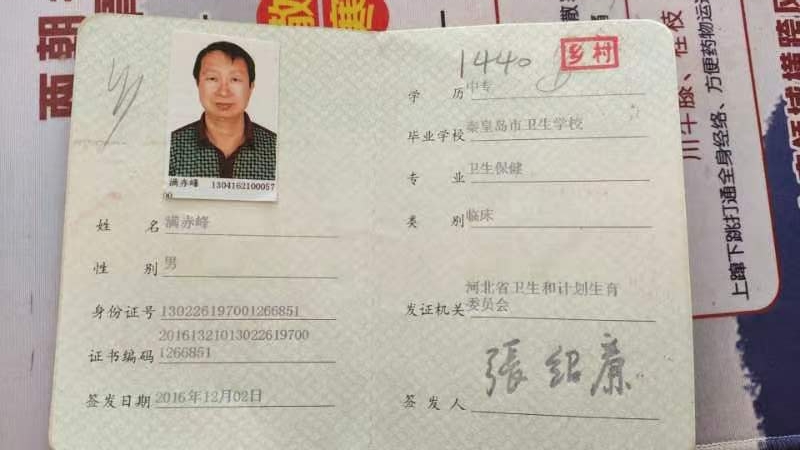 满赤峰 1304162100057
00
姓 名 满赤峰
性 别 男
身份证号 130226197001266851
20161321013022619700
证书编码 1266851
签发日期 2016年12月02日
1440
乡村
学 历 中专
毕业学校 秦皇岛市卫生学校
专 业 卫生保健
类 别 临床
河北省卫生和计划生育
发证机关 委员会
签 发 人 張紹廉
上蹿下跳打通全身经络、方便药物运